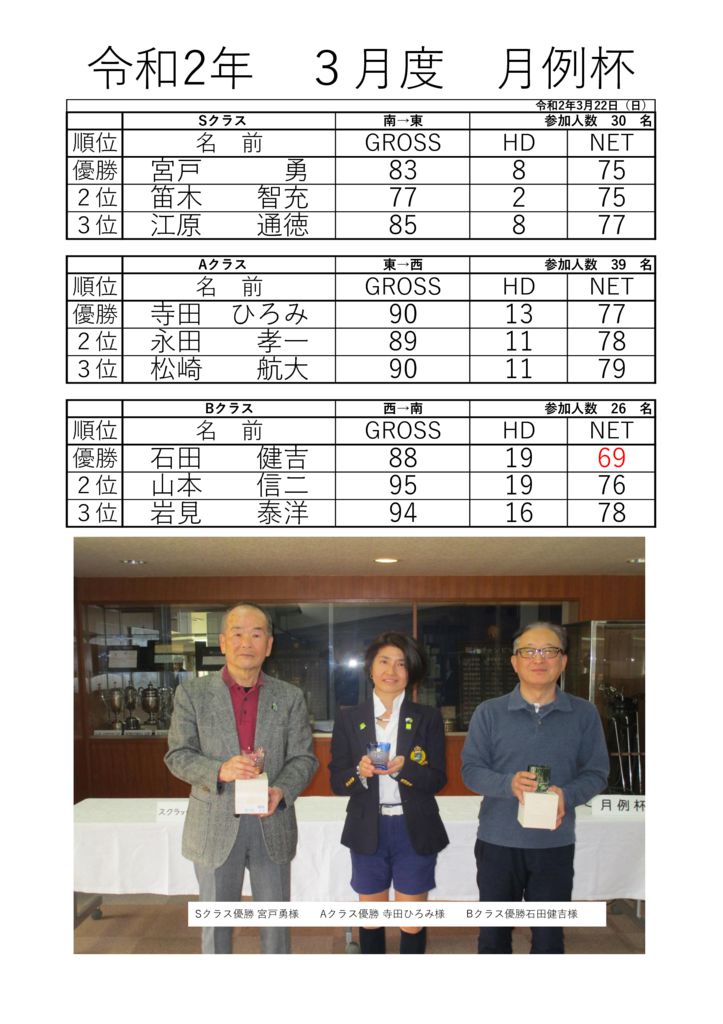 令和2年　３月度　月例杯
令和2年3月22日（日）
Sクラス 南→東 参加人数 30 名
順位 名 前 GROSS HD NET
優勝 宮戸 勇 83 8 75
２位 笛木 智充 77 2 75
３位 江原 通徳 85 8 77
Aクラス 東→西 参加人数 39 名
順位 名 前 GROSS HD NET
優勝 寺田 ひろみ 90 13 77
２位 永田 孝一 89 11 78
３位 松崎 航大 90 11 79
Bクラス 西→南 参加人数 26 名
順位 名 前 GROSS HD NET
優勝 石田 健吉 88 19 69
２位 山本 信二 95 19 76
３位 岩見 泰洋 94 16 78
スクラッ
月例杯
Sクラス優勝 宮戸勇様 Aクラス優勝 寺田ひろみ様 Bクラス優勝石田健吉様